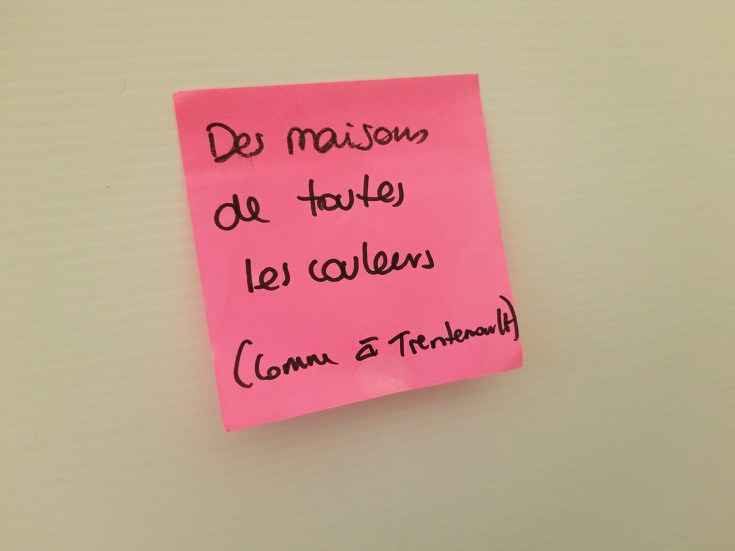 Des maisons
de toutes
les couleurs
(Comme à Trentemoult)